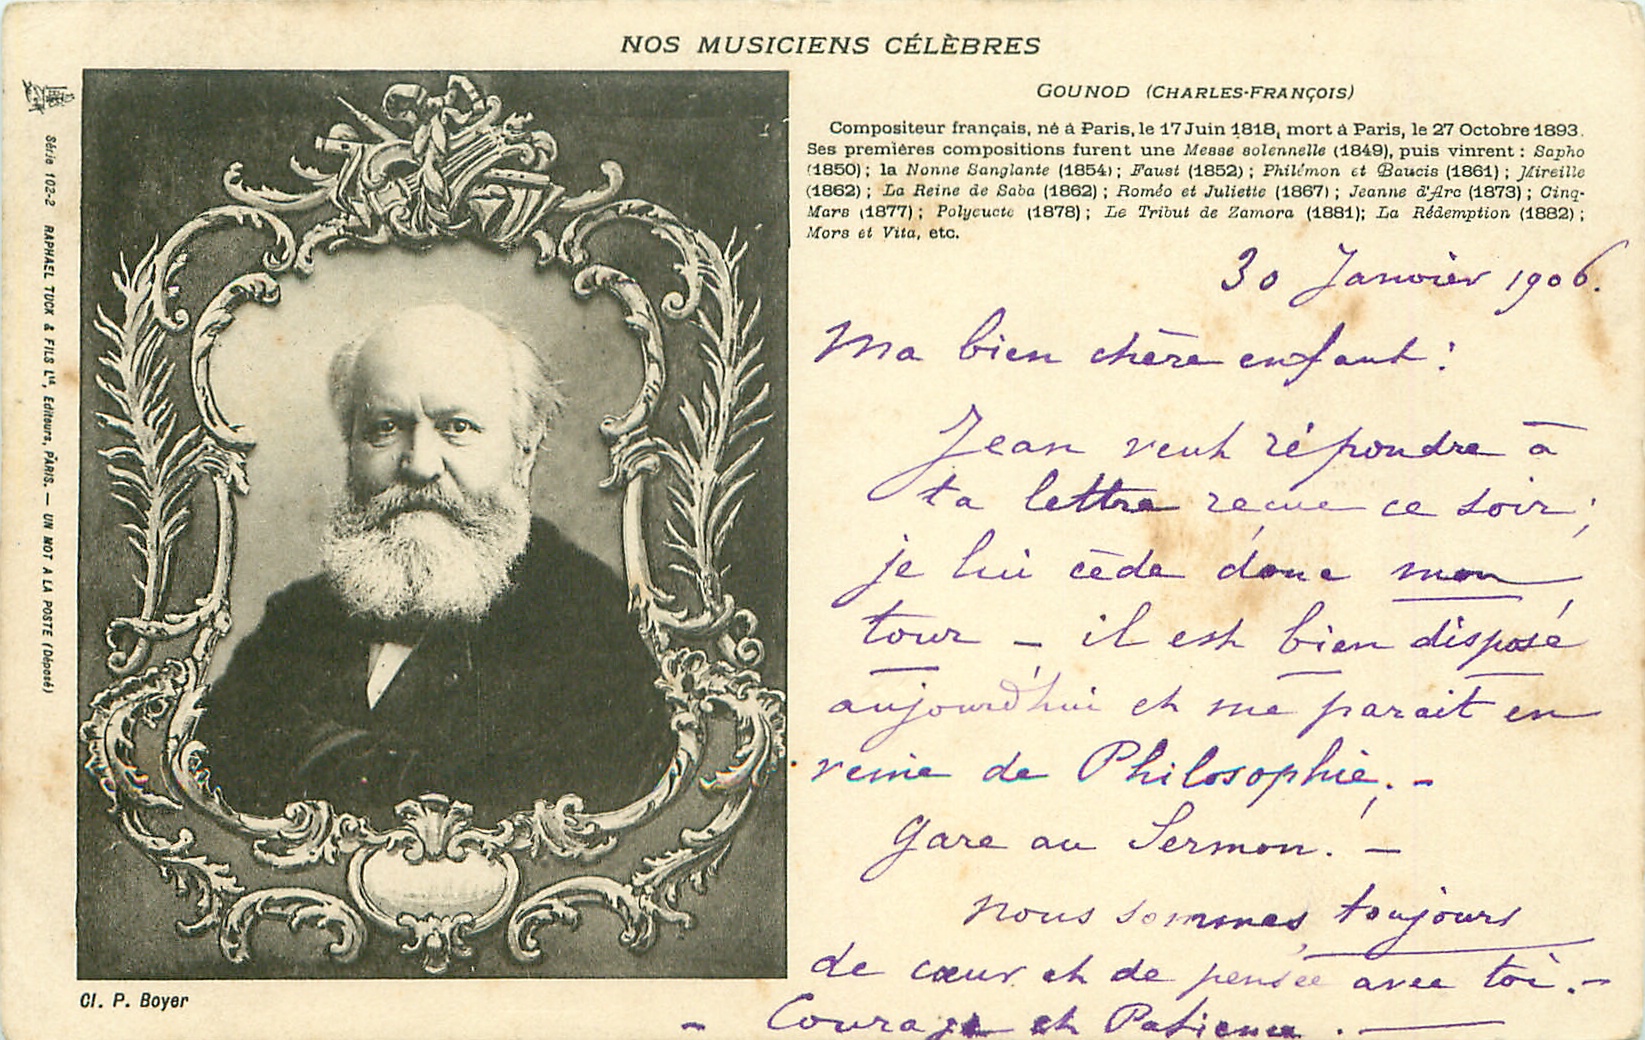 NOS MUSICIENS CÉLÈBRES
Série 102-2 RAPHAEL TUCK & FILS Ltd, Editeurs, PARIS. — UN MOT A LA POSTE (Déposé)
GOUNOD (CHARLES-FRANÇOIS)
Compositeur français, né à Paris, le 17 Juin 1818, mort à Paris, le 27 Octobre 1893.
Ses premières compositions furent une Messe solennelle (1849), puis vinrent : Sapho
(1850) ; la Nonne Sanglante (1854) ; Faust (1852) ; Philémon et Baucis (1861) ; Mireille
(1862) ; La Reine de Saba (1862) ; Roméo et Juliette (1867) ; Jeanne d'Arc (1873) ; Cinq-
Mars (1877) ; Polyeucte (1878) ; Le Tribut de Zamora (1881); La Rédemption (1882) ;
Mors et Vita, etc.
30 Janvier 1906.
Ma bien chère enfant :
Jean veut répondre à
ta lettre reçue ce soir ;
je lui cède donc mon
tour — il est bien disposé
aujourd'hui et me parait en
veine de Philosophie. —
Gare au Sermon ! —
Nous sommes toujours
de cœur et de pensée avec toi. —
— Courage et Patience. —
Cl. P. Boyer